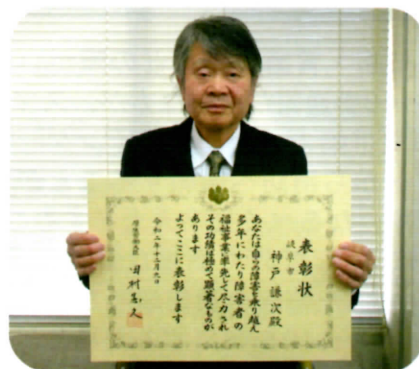 表彰状
岐阜市
神戸謙次殿
あなたは自らの障害を乗り越え
多年にわたり障害者の
福祉事業に率先して尽力され
その功績は極めて顕著なものが
あります
よってここに表彰します
令和二年十二月九日
厚生労働大臣
田村憲久